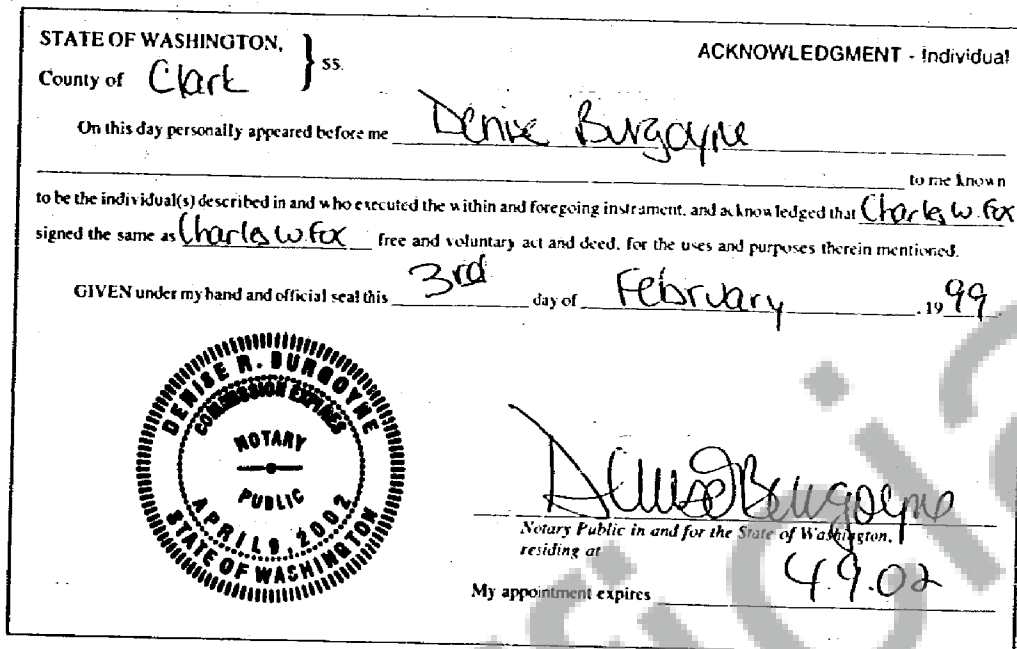 STATE OF WASHINGTON,
County of Clark } ss.
ACKNOWLEDGMENT - Individual
On this day personally appeared before me Denise Burgoyne
to me known
to be the individual(s) described in and who executed the within and foregoing instrament, and acknowledged that Charles W. Fox
signed the same as Charles W. Fox free and voluntary act and deed, for the uses and purposes therein mentioned.
GIVEN under my hand and official seal this 3rd day of February . 19 99
DENISE R. BURGOYNE
COMMISSION EXPIRES
NOTARY
PUBLIC
APRIL 9, 2002
STATE OF WASHINGTON
Denise Burgoyne
Notary Public in and for the State of Washington,
residing at
My appointment expires 4.9.02